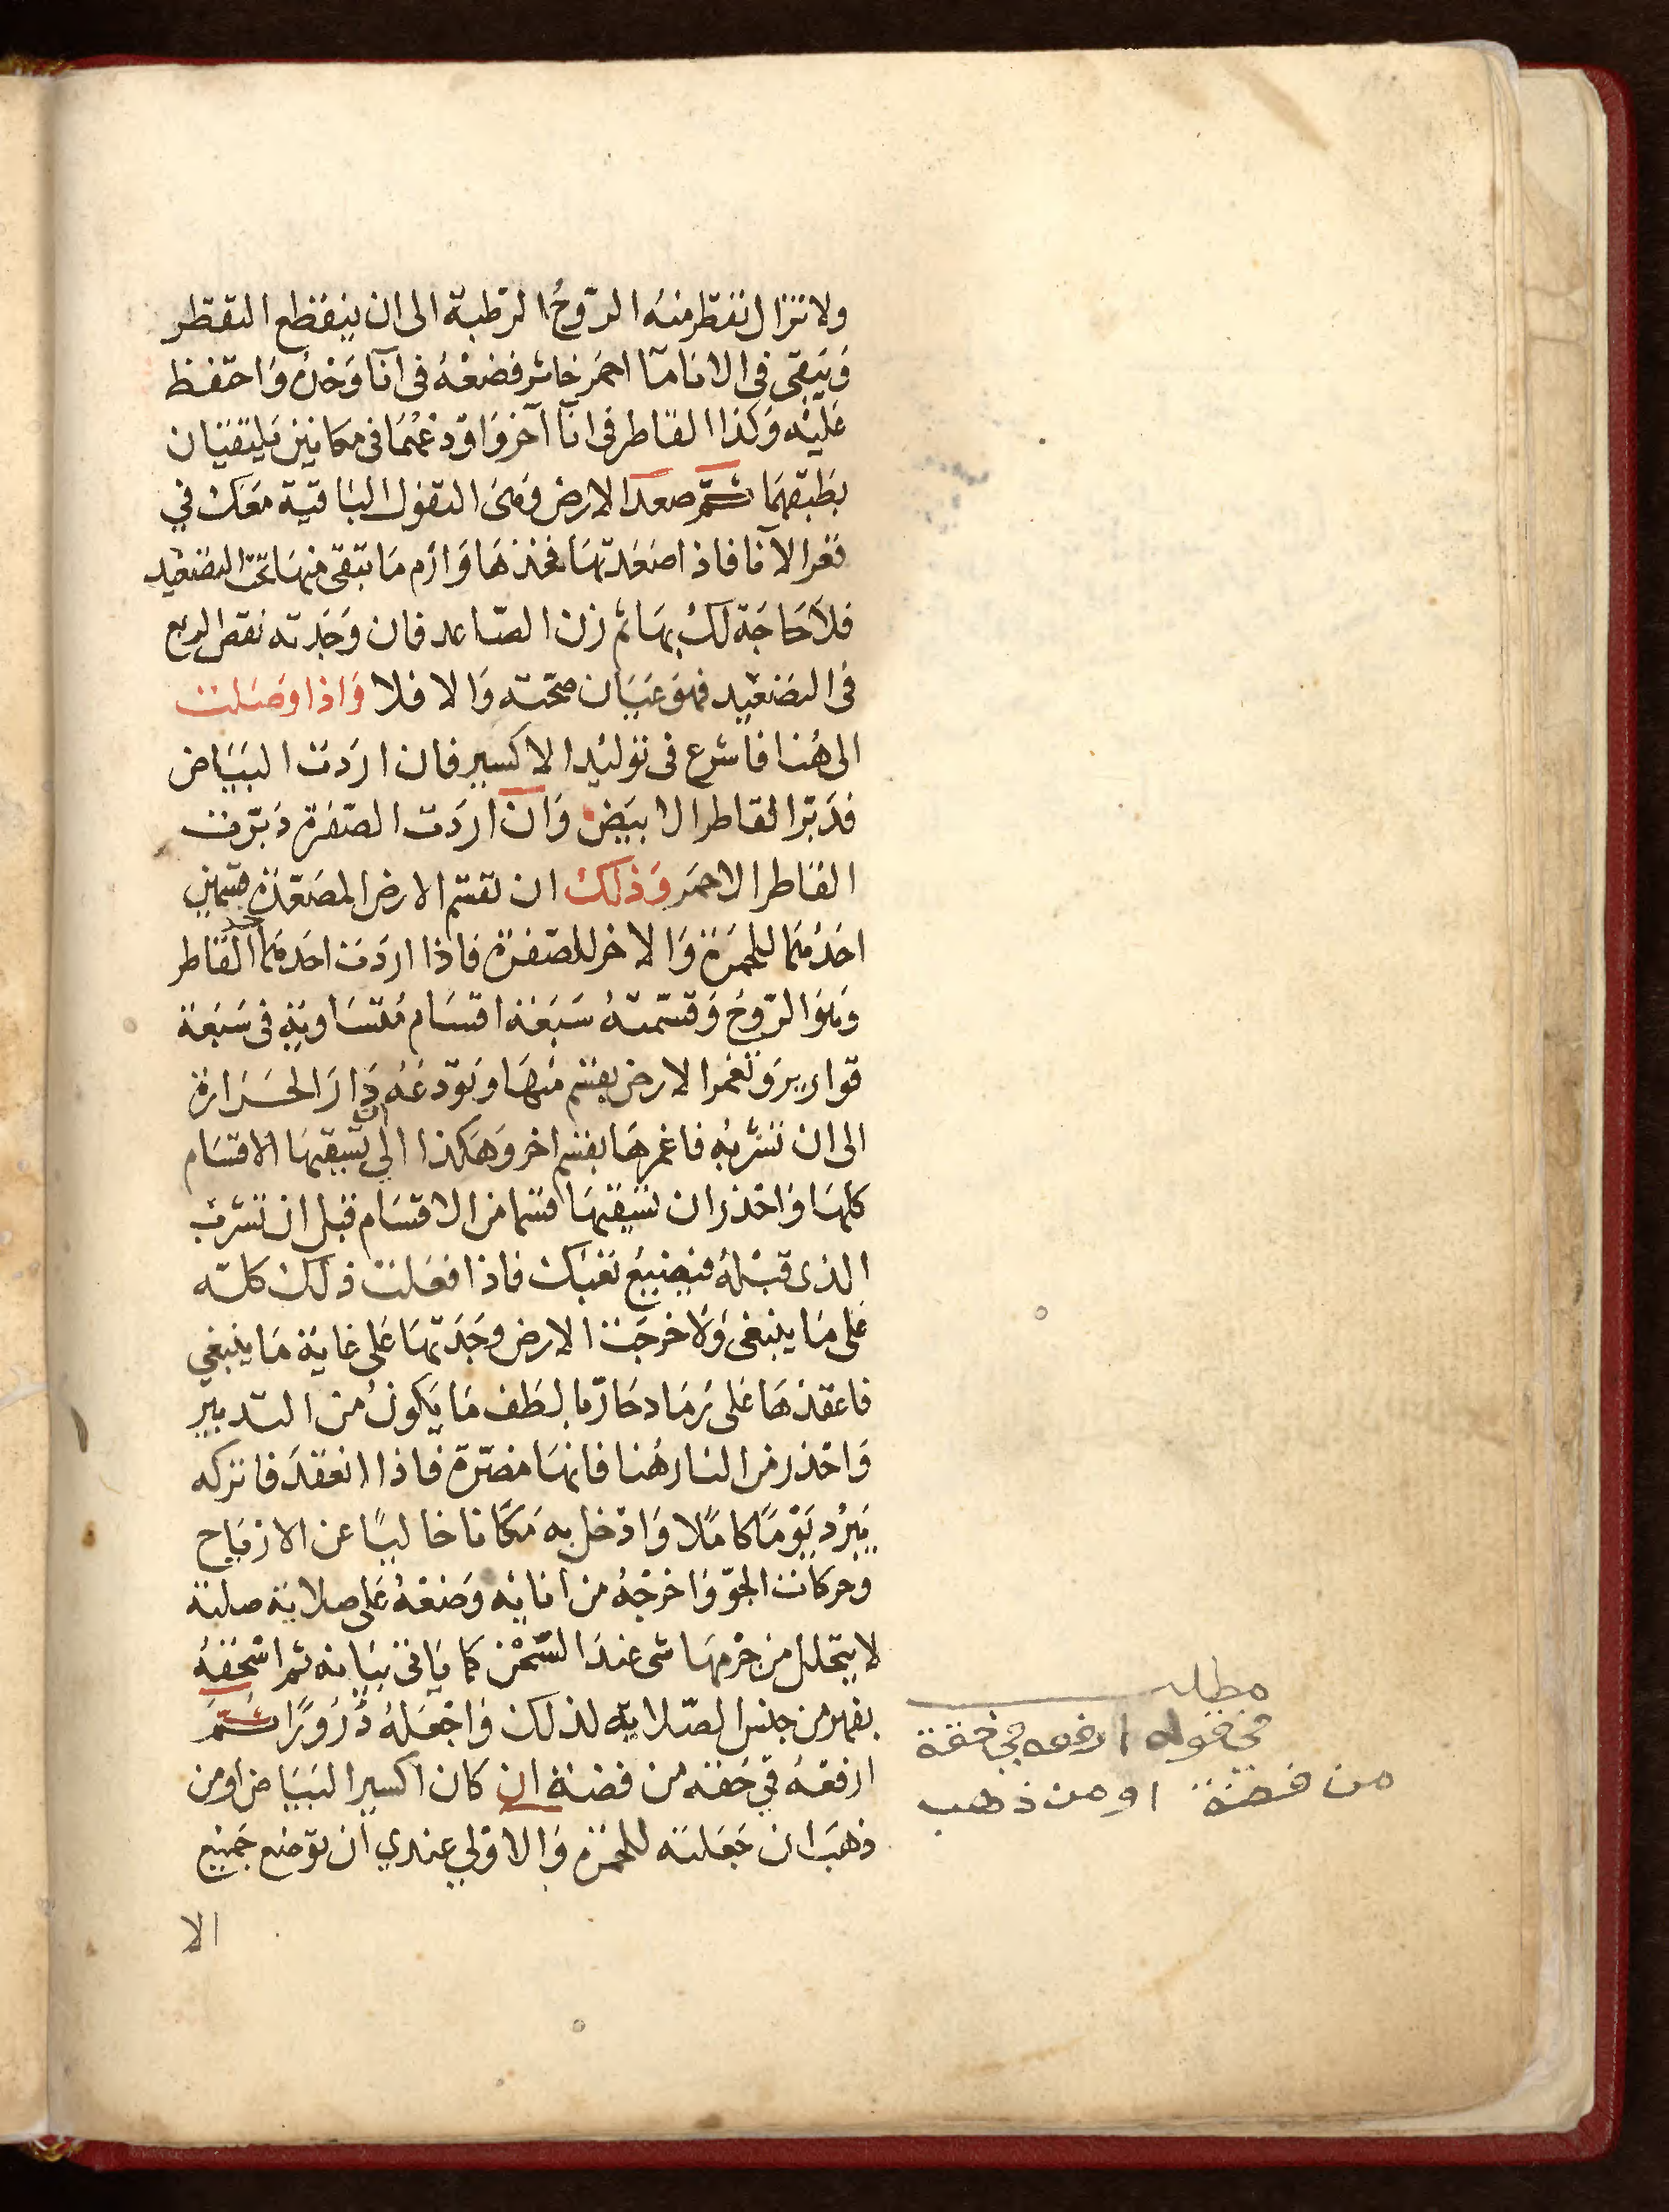 ولا تزال تقطر منه الرّوحُ الرطبة الى ان ينقطع التقطر
وَيَبقى فى الانا مآا احمَر خاثر فضعْهُ فى انآ وَحْدهُ وَاحتفظ
عَليْه وَكذا القاطر فى انآ آخر وَاوْدعْهُمَا فى مكانين يليقيَان
بطبقهمَا ثمّ صعد الارض وَهىَ التفول البَاقيَة مَعَك في
قعر الآنا فاذا صَعّدتهَا فخذهَا وَارْم مَا تبقى منهَا تحت التصْعيْد
فلا حَاجَة لكَ بهَا ثم زن الصّاعد فان وَجَدته نقص الربع
فى التصْعيْد فهوَ عيَان صحّته وَالا فلا وَاذا وصَلت
الى هُنا فاشرع فى توليْد الاكسير فان ارَدت البَيَاض
فدَبّر القاطر الابيَض وَان ارَدت الصّفرة دَبّرت
القاطر الاحمَر وَذلكَ ان تقسّم الارض المصَعّدَة قسمَين
احَدُهمَا للحمرَة وَالاخر للصّفرَة فاذا ارَدتَ احَدهمَا خذ القاطر
وَهوَ الرّوحُ وَقسّمتهُ سَبعَة اقسَام مُتسَاويَةٍ فى سَبعَة
قواريرَ وَتغمر الارض بقسْم منهَا وَتودعَهُ دَار الحَرَارَة
الى ان تشربهُ فاغمرهَا بقسْم اخر وَهَكذا الي ان تسقيهَا الاقسَام
كلهَا وَاحْذر ان تسْقيهَا قسْما من الاقسَام قبل ان تشرَب
الذى قبْلهُ فيَضيعُ تعَبُكَ فاذا فعَلت ذلكَ كلّه
عَلى مَا ينبَغى وَلاخرجَت الارض وجَدتهَا عَلى غايَة مَا ينبغي
فاعقدْهَا عَلى رَمَاد حَارّ بالطَف مَا يَكونُ من التدبير
وَاحْذر من النار هُنا فانهَا مضرّة فاذا انعَقدَ فاتركه
يَبْرُد يَوْمًا كامًلا وَادْخل به مَكانا خاليًا عن الاريَاح
وحركات الجوّ وَاخرجْهُ من انائِه وَضعْهُ عَلى صلايَة صلبَة
لا يتحَلل من جرْمهَا شى عندَ السّحْق كما يَاتى بيَانه ثم اسْحَقهُ
بفهر من جنس الصّلايَة لذلك وَاجْعَلهُ ذَرُورًا ثمّ
ارفعْهُ في حُقة من فضّة ان كان اكسير البَيَاض او من
ذهَب ان جَعَلته للحمَرة وَالاوْلي عندي ان توضع جَميْع
الا
مطلب
في قوله ارفعه في حقة
من فضة او من ذهب